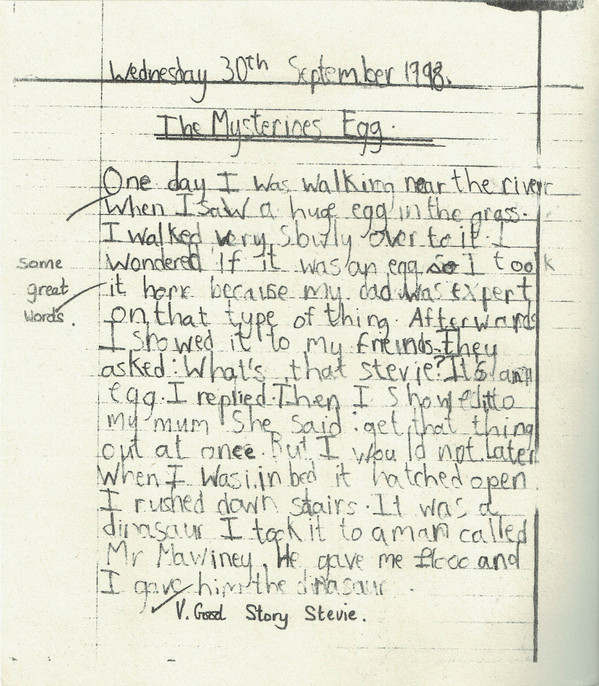 Wednesday 30th September 1998.
The Mysterines Egg.
One day I was walking near the river
when I saw a huge egg in the grass.
I walked very slowly over to it I
some
wondered if it was an egg so I took
great
it home because my dad was expert
words.
on that type of thing. Afterwards
I showed it to my freinds. they
asked: What's that stevie? It's an
egg. I replied. Then I showed it to
my mum She said: get that thing
out at once. But I would not later
when I was in bed it hatched open
I rushed down stairs. It was a
dinasaur I took it to a man called
Mr Mawiney. He gave me £1000 and
I gave him the dinasaur.
V. Good Story Stevie.